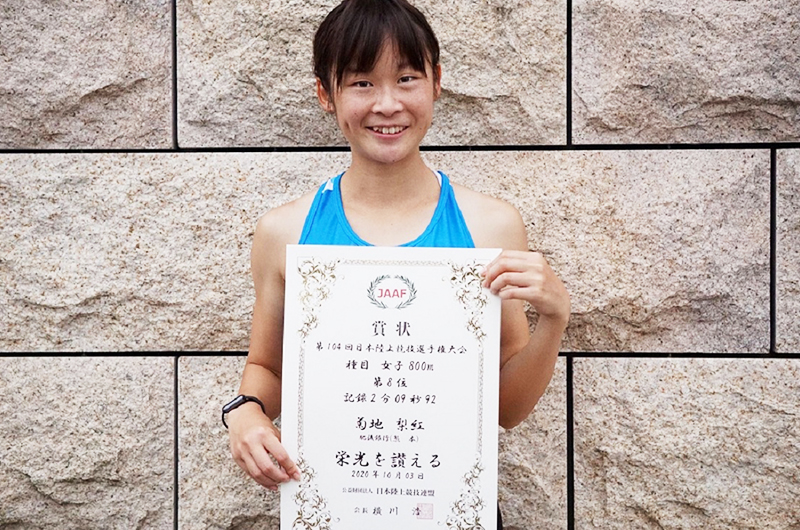 JAAF
賞状
第104回日本陸上競技選手権大会
種目 女子800m
第8位
記録2分09秒92
菊地 梨紅
肥後銀行(熊 本)
栄光を讃える
2020年10月03日
公益財団法人 日本陸上競技連盟
会長 横川 浩